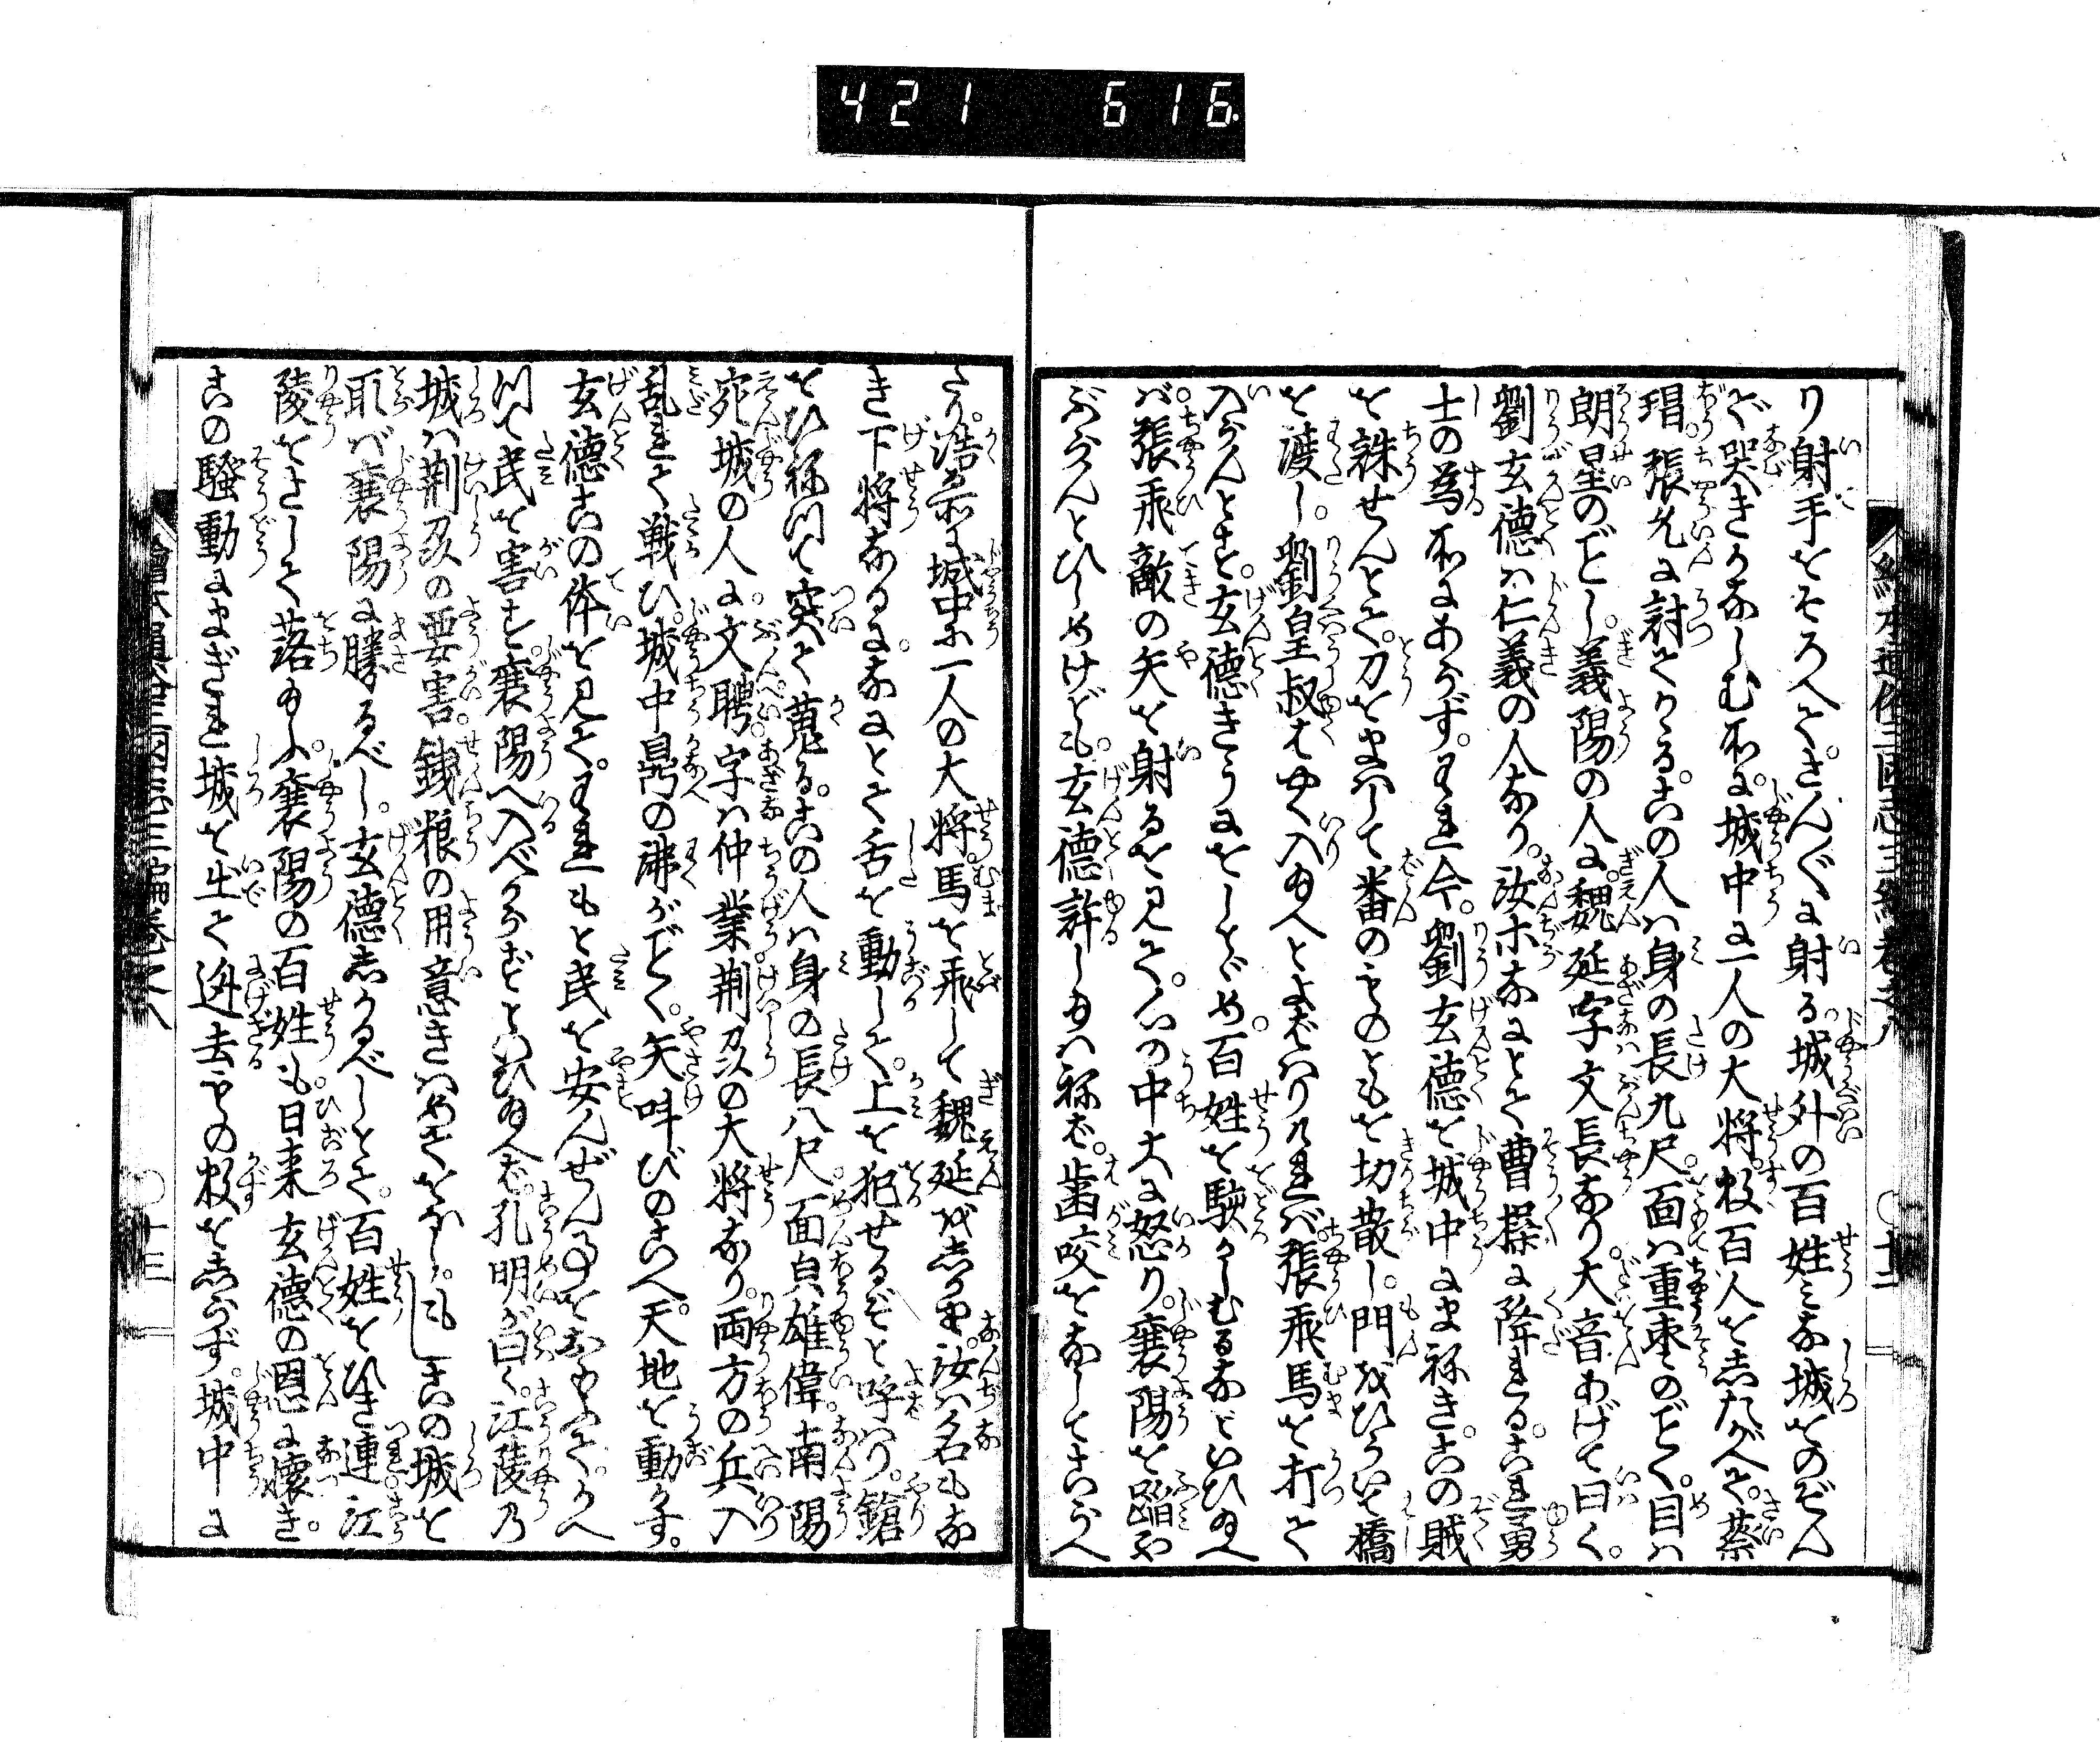 421 616
繪本通俗三國志三編卷之八 ○十二
り射手をそろへて。さん〲に射る。城外の百姓みな城をのぞん
で哭きかなしむ所に。城中に一人の大将。数百人を志たがへて。蔡
瑁。張允に討てかゝる。この人ハ身の長九尺。面ハ重棗のごとく。目ハ
朗星のごとし。義陽の人に。魏延字文長なり。大音あげて曰く。
劉玄徳ハ仁義の人なり。汝ホなにとて曹操に降れる。これ勇
士の為所にあらず。われ今。劉玄徳を城中にまねき。この賊
を誅せんとて。刀をまハして番のものどもを切散し。門をひらいて橋
を渡し。劉皇叔はやく入給へとよばハりけれバ。張飛馬を打て
入らんとす。玄徳きうにをしとゞめ。百姓を駭かしむるなといひ給へ
バ。張飛敵の矢を射るを見て。心の中大に怒り。襄陽を踏や
ぶらんとひしめけども。玄徳許し給ハねバ。歯咬をなしてこらへ
たり。浩処に城中に一人の大将。馬を飛して魏延を志かり。汝ハ名もな
き下将なるに。なにとて舌を動して。上を犯せるぞと呼ハり。鎗
をひねつて突て蒐る。この人ハ身の長八尺。面貌雄偉。南陽
宛城の人に。文聘。字ハ仲業。荊州の大将なり。両方の兵入
乱れて戦ひ。城中鼎の沸がごとく。矢叫びのこへ。天地を動かす。
玄徳この体を見て。われもと民を安んぜん事をおもふて。かへ
つて民を害す。襄陽へ入べからずとのひ給へバ。孔明が曰く。江陵乃
城ハ荊州の要害。銭粮の用意きハめて多し。もしこの城を
取バ。襄陽に勝るべし。玄徳志かるべしとて。百姓をひき連。江
陵をさして落給ふ。襄陽の百姓も。日来玄徳の恩に懐き。
この騒動にまぎれ。城を出て迯去もの数を志らず。城中に
繪本通俗三國志三編卷之八 ○十三